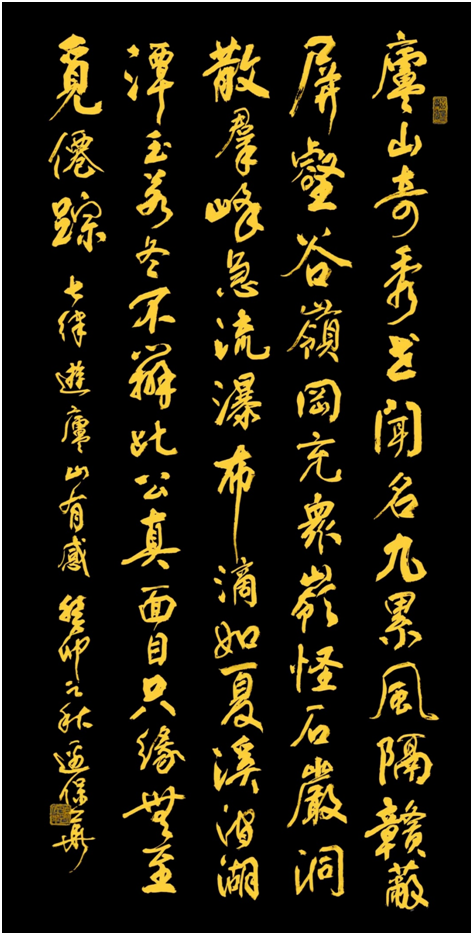 廬山奇秀世聞名九累風隔贛蔽
屏壑谷嶺岡充衆嶺怪石巖洞
散羣峰急流瀑布滴如夏溪泊湖
潭玉若冬不辨此公真面目只緣無至
覓僊踪 七律 遊廬山有感 癸卯之秋 保華